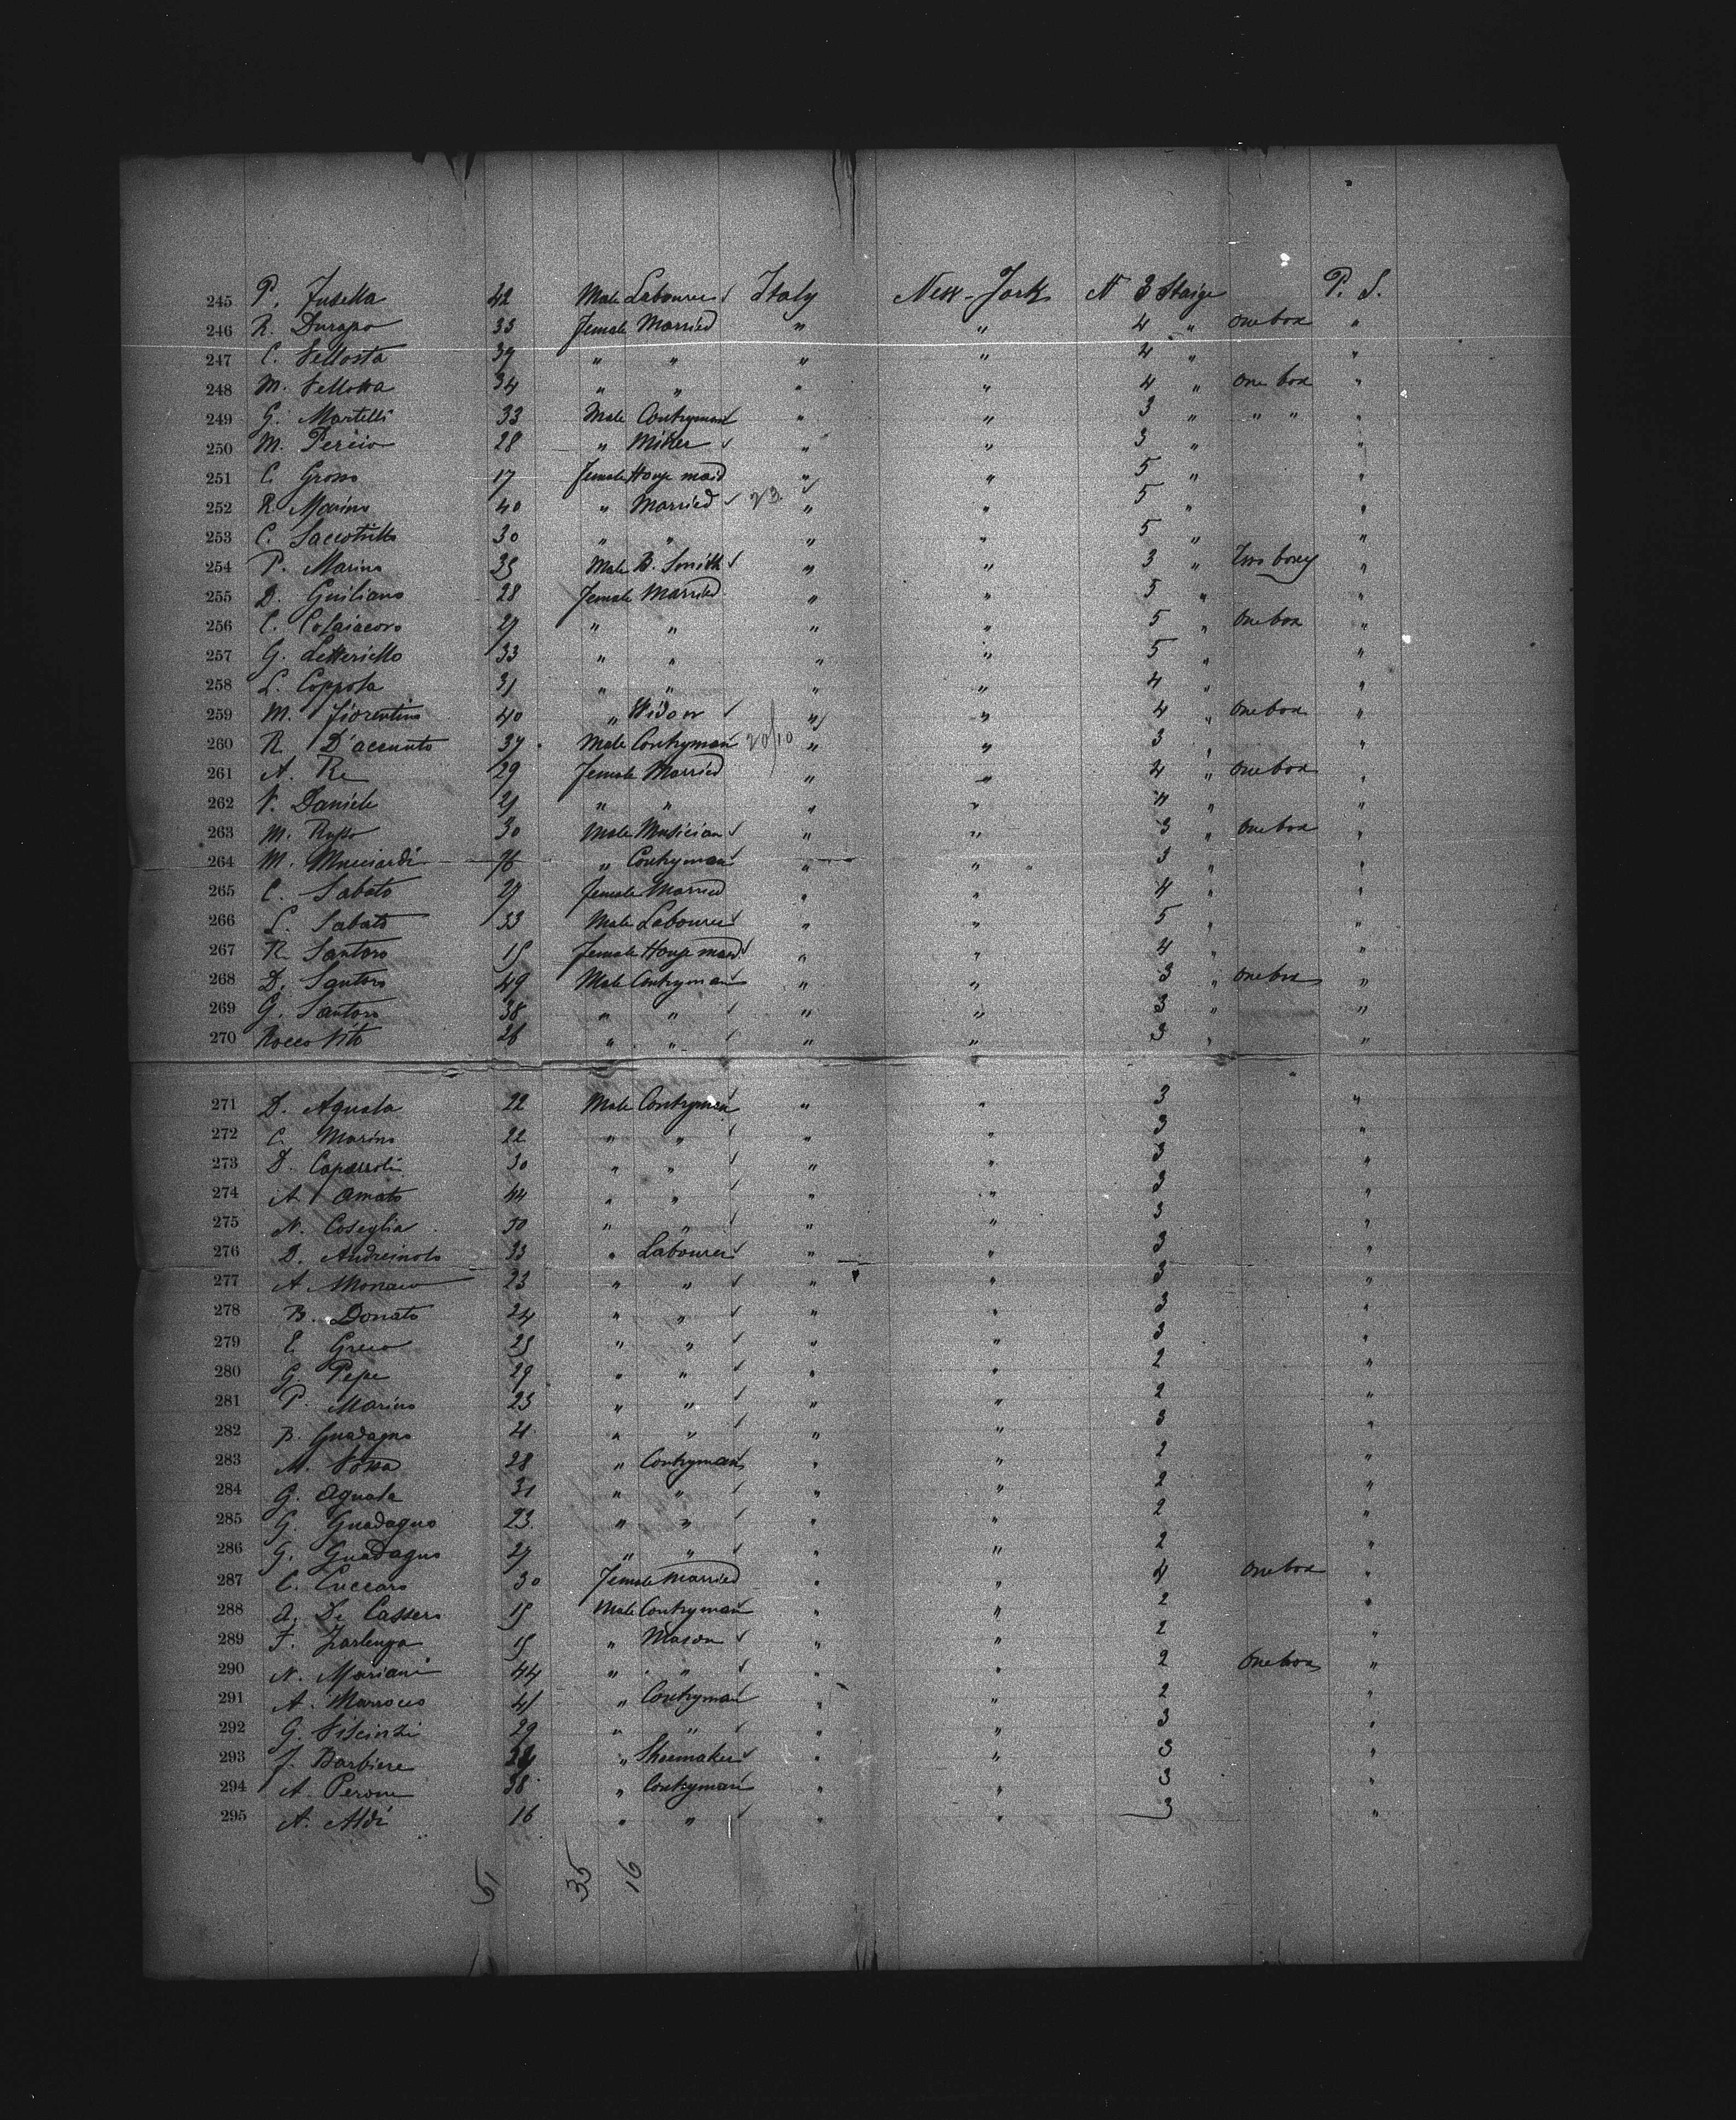 245 P. Fusella 42 Male Labourer Italy New-York N 3 Staige P. S.
246 R. Durapo 33 Female Married " " 4 " One box "
247 C. Vellosta 39 " " " " 4 " "
248 M. Vellosta 34 " " " " 4 " One box "
249 G. Martelli 33 Male Contryman " " 3 " " " "
250 M. Percio 28 " Miller " " 3 " "
251 C. Grosso 17 Female House maid " " 5 " "
252 R. Marino 40 " Married 23 " " 5 " "
253 C. 30 " " " " 5 " "
254 P. Marino 35 Male B. Smith " " 3 " Two boxes "
255 D. Guiliano 28 Female Married " " 5 " "
256 C. Colaiacovo 27 " " " " 5 " One box "
257 G. Letteriello 33 " " " " 5 " "
258 L. Coppola 31 " " " " 4 " "
259 M. Fiorentino 40 " Widow " " 4 " One box "
260 R. D'accunto 37 Male Contryman 20/10 " " 3 " "
261 A. Re 29 Female Married " " 4 " One box "
262 V. Daniele 21 " " " " 4 " "
263 M. Russo 30 Male Musician " " 3 " One box "
264 M. Mucciardi 76 " Contryman " " 3 " "
265 C. Sabato 27 Female Married " " 4 " "
266 L. Sabato 33 Male Labourer " " 5 " "
267 R. Santoro 15 Female House maid " " 4 " "
268 D. Santoro 49 Male Contryman " " 3 " One box "
269 G. Santoro 38 " " " " 3 " "
270 Rocco Vito 26 " " " " 3 " "
271 D. Aquala 22 Male Contryman " " 3 "
272 C. Marino 22 " " " " 3 "
273 D. Caparroti 30 " " " " 3 "
274 A. Amato 44 " " " " 3 "
275 N. Coseglia 30 " " " " 3 "
276 D. 33 " Labourer " " 3 "
277 A. Monaco 23 " " " " 3 "
278 B. Donato 24 " " " " 3 "
279 E. Greco 25 " " " " 3 "
280 G. Pepe 29 " " " " 2 "
281 P. Marino 23 " " " " 2 "
282 B. Guadagno 21 " " " " 3 "
283 M. Vossa 28 " Contryman " " 2 "
284 G. Aquala 31 " " " " 2 "
285 G. Guadagno 23 " " " " 2 "
286 G. Guadagno 27 " " " " 2 "
287 C. Cuccaro 30 Female Married " " 4 One box "
288 A. De Cassero 15 Male Contryman " " 2 "
289 F. Zarlenga 15 " Mason " " 2 "
290 N. Mariani 44 " " " " 2 One box "
291 A. Marrocco 41 " Contryman " " 2 "
292 G. Viscinzi 29 " " " " 3 "
293 J. Barbiere " Shoemaker " " 3 "
294 A. Perone 38 " Contryman " " 3 "
295 A. Aldi 16 " " " " 3 "
51 35 16